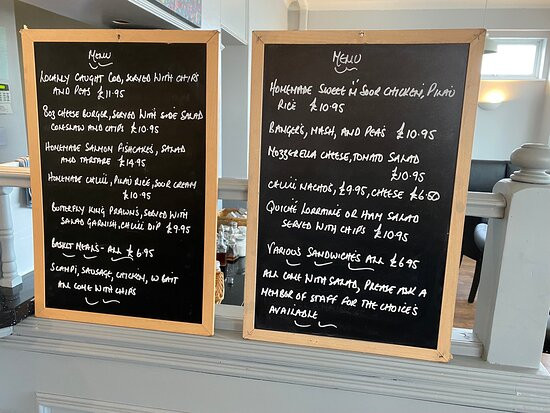 Menu
Locally Caught Cod, served with chips
and peas £11.95
8oz Cheese Burger, served with side salad
coleslaw and chips £10.95
Homemade Salmon Fishcakes, salad
and tartare £14.95
Homemade Chilli, Pilau Rice, Sour Cream
£10.95
Butterfly King Prawns, served with
salad garnish, chilli dip £9.95
Basket Meals - all £6.95
Scampi, Sausage, Chicken, W Bait
all come with chips
Menu
Homemade Sweet "n" Sour Chicken, Pilau
Rice £10.95
Bangers, Mash, and Peas £10.95
Mozzerella Cheese, Tomato Salad
£10.95
Chilli Nacho's, £9.95, Cheese £6.50
Quiche Lorraine or Ham Salad
served with chips £10.95
Various Sandwiches all £6.95
all come with salad, please ask a
member of staff for the choice's
available